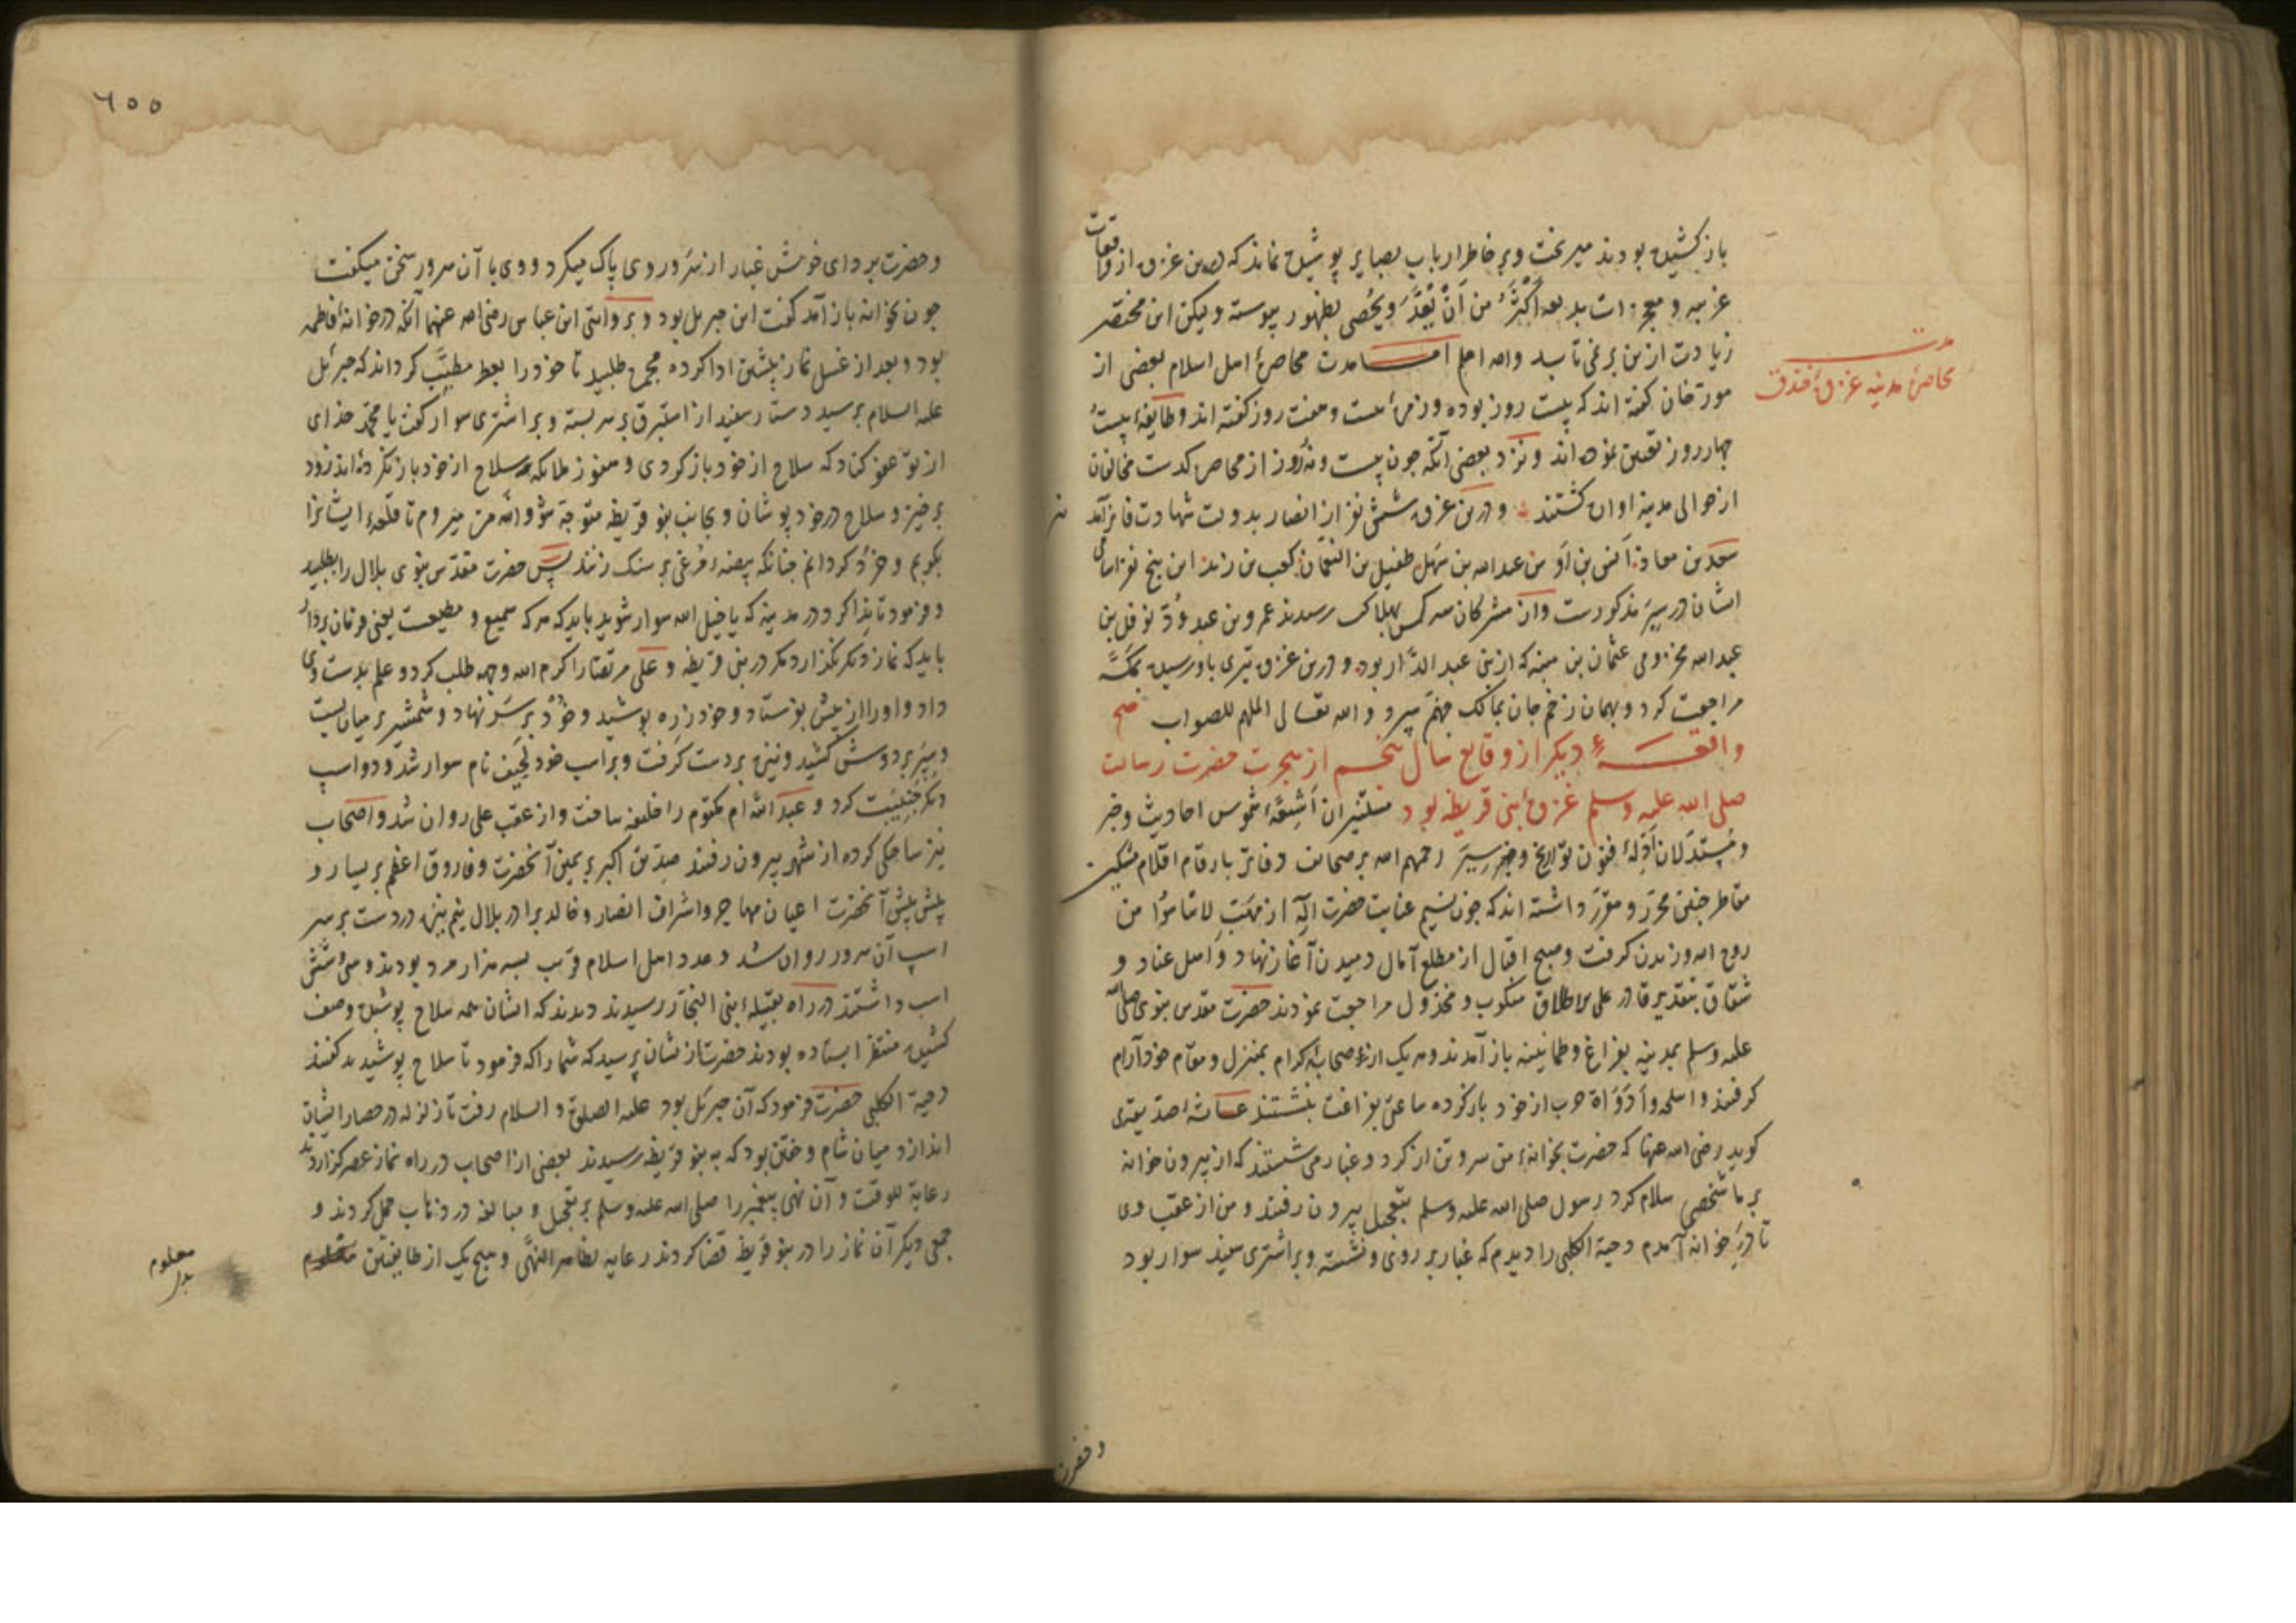 باز کشیده بودند میریخت و بر خاطر ارباب بصایر پوشیده نماند که درین غزوه از واقعات
غریبه و معجزات بدیعه اَکْثَرُ من اَنْ یُعَدَّ وَیُحْصی بظهور پیوسته و لیکن این مختصر
زیادت ازین بر نمی تابد والله اعلم امّا مدت محاصرهٔ اهل اسلام بعضی از
مدت
محاصرهٔ مدینه غزوهٔ خندق
مورخان گفته اند که بیست روز بوده و زمرهٔ بیست و هفت روز گفته اند و طایفهٔ بیست
چهار روز تعیین نموده اند و نزد بعضی آنکه چون بیست و نه روز از محاصره گذشت مخالفان
از حوالی مدینه اواره گشتند و درین غزوه شش نفر از انصار بدولت شهادت فایز آمدند
سعد بن معاذ انس بن اَوس عبدالله بن سَهل طفیل بن النعمان کعب بن زید این پنج نفر اسامی
ایشان در سِیَر مذکورست و از مشرکان سه کس بهلاک رسیدند عمرو بن عبد وُدّ نوفل بن
عبدالله مخزومی عثمان بن منبه که از بنی عبد الدّار بود و درین غزوه تیری باو رسیده بمکّه
مراجعت کرد و بهمان زخم جان بمالک جهنم سپرد والله تعالی الملهم للصواب صح
واقعهٔ دیگر از وقایع سال پنجم از هجرت حضرت رسالت
صلی الله علیه وسلم غزوهٔ بنی قریظه بود مستنیران اَشِعّهٔ شموس احادیث و خبر
و مُستدلّان اَدِلّهٔ فنون تواریخ و سِیَر رحمهم الله بر صحائف دفاتر بارقام اقلام مشکین
مقاطر چنین محرّر و مقرّر داشته اند که چون نسیم عنایت حضرت آله از مهبّ لا تیأسوا من
روح الله وزیدن گرفت و صبح اقبال از مطلع آمال دمیدن آغاز نهاد و اهل عناد و
شقاق بتقدیر قادر علی الاطلاق منکوب و مخذول مراجعت نمودند حضرت مقدس نبوی صلی الله
علیه وسلم بمدینه بفراغ و طمانینه باز آمدند و هر یک از اصحاب کرام بمنزل و مقام خود آرام
گرفتند و اسلحه و ادوات حرب از خود باز کرده ساعتی بفراغت بنشستند عایشه صدیقه
گوید رضی الله عنها که حضرت بخانهٔ من سر و تن از گرد و غبار می شستند که از بیرون خانه
بر ما شخصی سلام کرد رسول صلی الله علیه وسلم بتعجیل بیرون رفتند و من از عقب وی
تا در خانه آمدم دحیة الکلبی را دیدم که غبار بر روی و نشسته و بر اشتری سفید سوار بود
و حضرت
٦٥٥
و حضرت بردای خویش غبار از سَر و روی پاک میکرد و وی با آن سرور سخن میگفت
چون بخانه باز آمد گفت این جبریل بود و بروایتی ابن عباس رضی الله عنهما آنکه در خانهٔ فاطمه
بود و بعد از غسل نماز پیشین ادا کرده مجمر طلبید تا خود را بعطر مطیّب گرداند که جبرئیل
علیه السلام برسید دستار سفید از استبرق بر سر بسته و بر اشتری سوار گفت یا محمّد خدای
از تو عفو کناد که سلاح از خود باز کردی و هنوز ملائکه سلاح از خود باز نکرده اند زود
برخیز و سلاح در خود پوشان و بجانب بنو قریظه متوجه شو والله من میروم تا قلعهٔ ایشانرا
بکوبم و خرد گردانم چنانکه بیضهٔ مرغی بر سنگ زنند پس حضرت مقدّس نبوی بلال را بطلبید
و فرمود تا ندا کرد در مدینه که یا خیل الله سوار شوید باید که هر که سمیع و مطیعست یعنی فرمان بردار
باید که نماز دیگر نگزارد مگر در بنی قریظه و علی مرتضا را کرم الله وجهه طلب کرد و علم بدست وی
داد و او را از پیش بفرستاد و خود زره پوشید و خُوْد بر سَر نهاد و شمشیر بر میان بست
و سپر بر دوش کشید و نیزه بر دست گرفت و بر اسب خود لُحَیف نام سوار شد و دو اسپ
دیگر جَنیبَت کرد و عبدالله ام مکتوم را خلیفه ساخت و از عقب علی روان شد و اصحاب
نیز ساختگی کرده از شهر بیرون رفتند صدیق اکبر بر یمین آنحضرت و فاروق اعظم بر یسار و
پیش پیش آنحضرت اعیان مهاجر و اشراف انصار و خالد برادر بلال نیم نیزه در دست بر سر
اسپ آن سرور روان شد و عدد اهل اسلام قریب بسه هزار مرد بودند و سی و شش
اسب داشتند در راه بقبیلهٔ بنی النجار رسیدند دیدند که ایشان همه سلاح پوشیده وصف
کشیده منتظر ایستاده بودند حضرت از نشان پرسید که شما را که فرمود تا سلاح پوشیدید گفتند
دحیة الکلبی حضرت فرمود که آن جبرئل بود علیه الصلوة و السلام رفت تا زلزله در حصار ایشان
اندازد میان شام و خفتن بود که به بنو قریظه رسیدند بعضی از اصحاب در راه نماز عصر گزاردند
رعایة للوقت و آن نهی پیغمبر را صلی الله علیه وسلم بر تعجیل و مبالغه در ذهاب حمل کردند و
جمعی دیگر آن نماز را در بنو قریظه قضا کردند رعایه لظاهر النهی و هیچ یک از طایفتین معلوم
معلوم